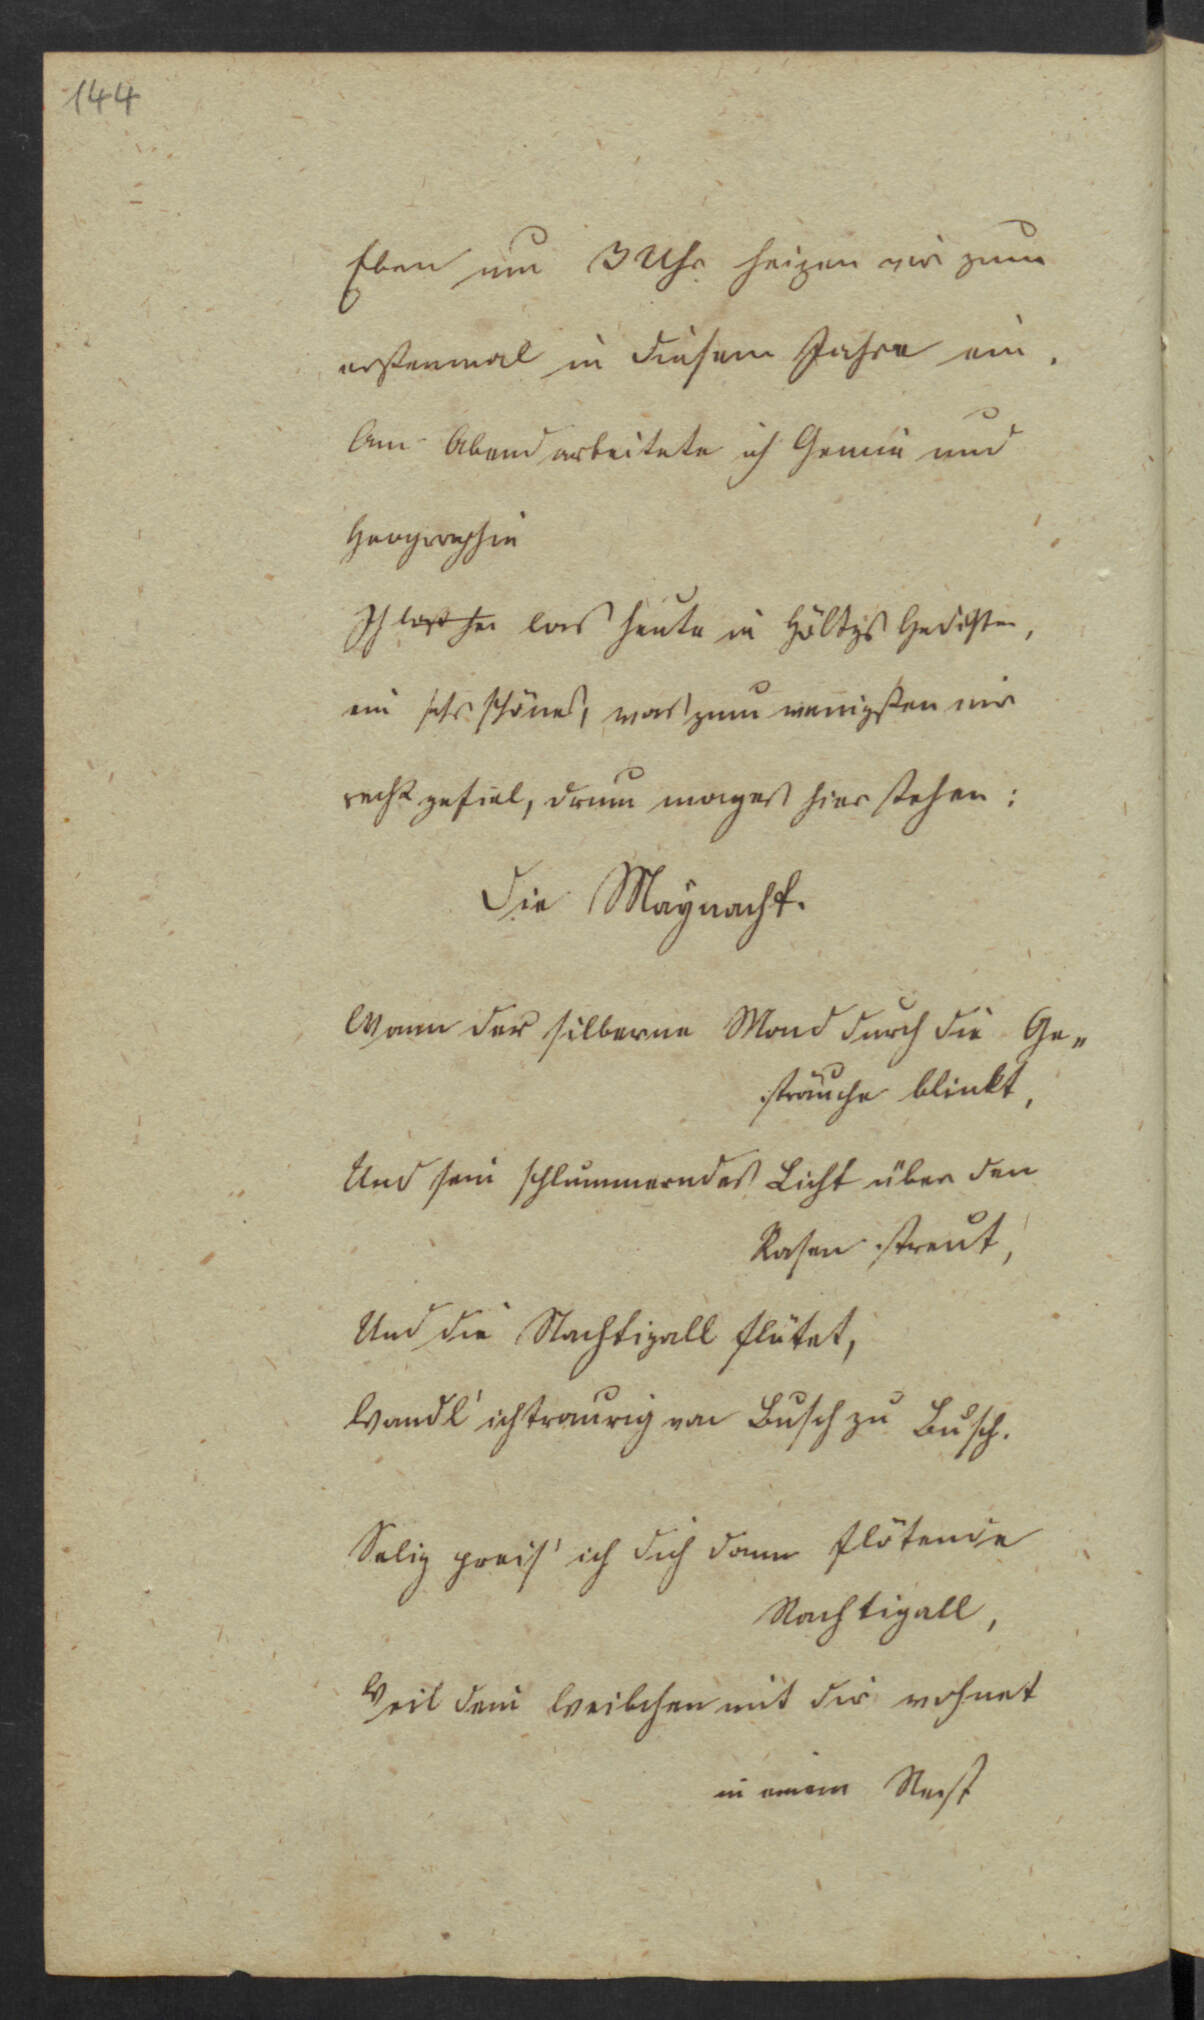 144
Eben um 3 Uhr heizen wir zum
erstenmal in diesem Jahre ein.
Am Abend arbeitete ich und
Geographie
Ich las heute in Höltys Gedichten,
ein sehr schönes, was zum wenigsten mir
recht gefiel, drum mages hier stehen:
Die Maynacht.
Wann der silberne Mond durch die Ge„
sträuche blinkt,
Und sein schlummerndes Licht über den
Rasen streut,
Und die Nachtigall flötet,
Wandl' ich traurig von Busch zu Busch.
Selig preis' ich dich dann flötende
Nachtigall,
Weil dein Weibchen mit dir wohnet
in einem Nest